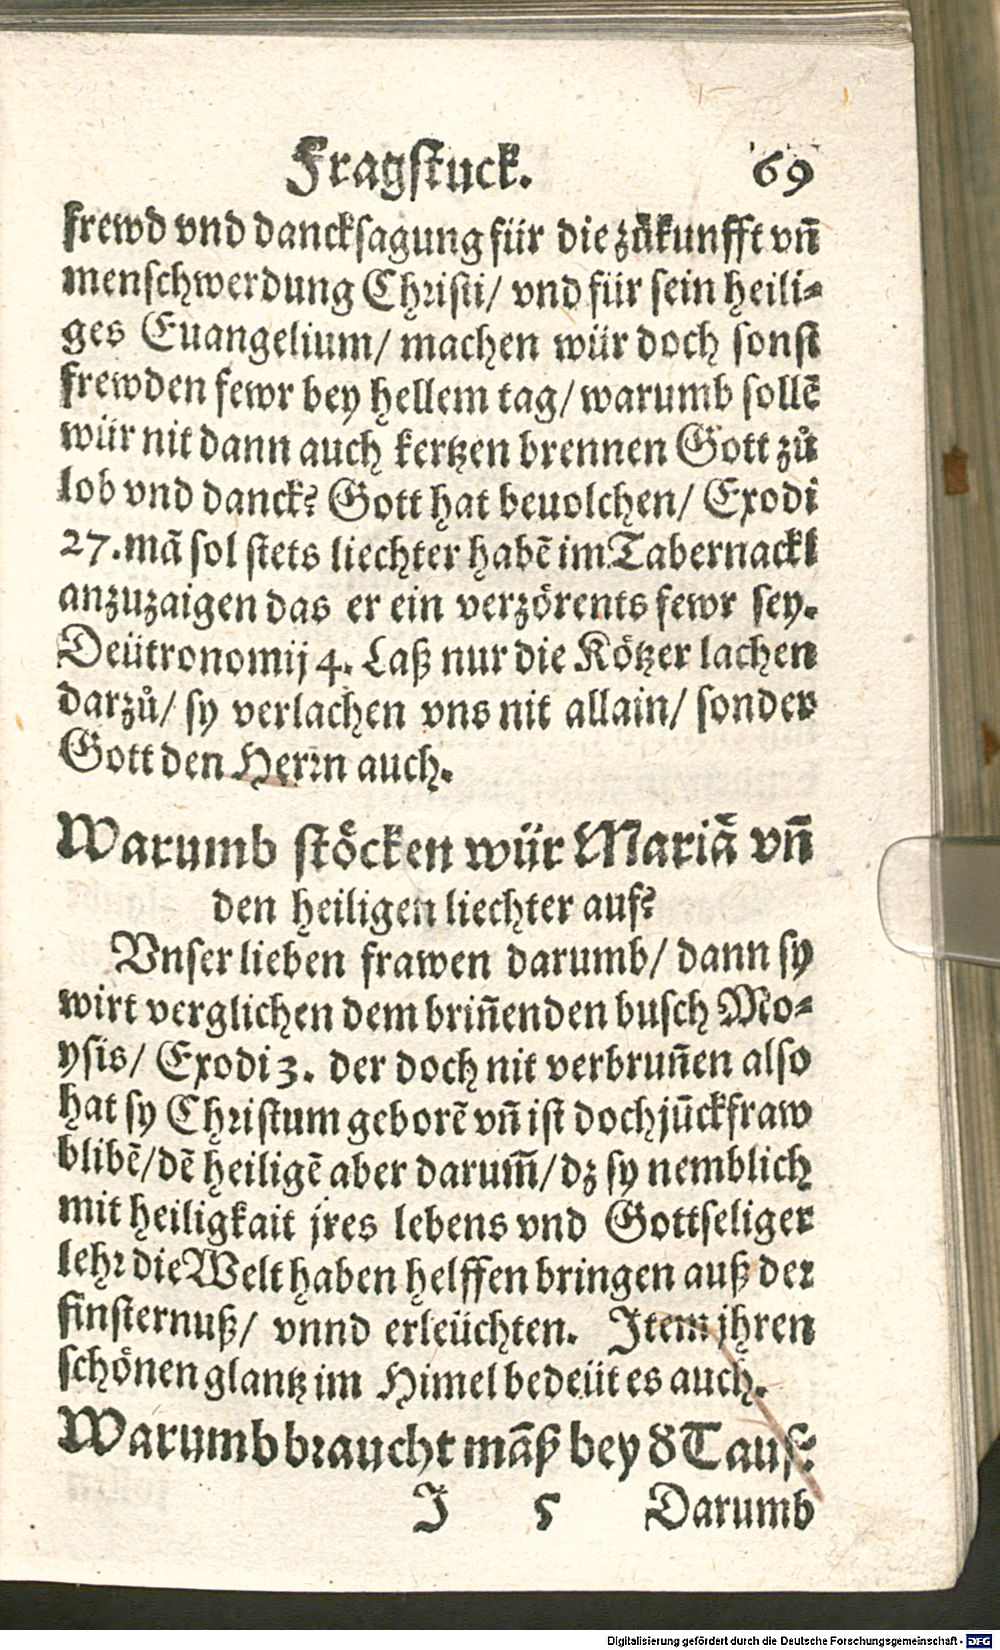 Fragstuck. 69
frewd vnd dancksagung für die zůkunfft vñ
menschwerdung Christi/ vnd für sein heili-
ges Euangelium/ machen wür doch sonst
frewden fewr bey hellem tag/ warumb sollẽ
wür nit dann auch kertzen brennen Gott zů
lob vnd danck? Gott hat beuolchen/ Exodi
27. mã sol stets liechter habẽ im Tabernackl
anzuzaigen das er ein verzörents fewr sey.
Deütronomij 4. Laß nur die Kötzer lachen
darzů/ sy verlachen vns nit allain/ sonder
Gott den Herrn auch.
Warumb stöcken wür Mariã vñ
den heiligen liechter auf?
Vnser lieben frawen darumb/ dann sy
wirt verglichen dem briñenden busch Mo-
ysis/ Exodi 3. der doch nit verbruñen also
hat sy Christum geborẽ vñ ist doch jũckfraw
blibẽ/ dẽ heiligẽ aber darum̃/ dz sy nemblich
mit heiligkait jres lebens vnd Gottseliger
lehr die Welt haben helffen bringen auß der
finsternuß/ vnnd erleüchten. Item jhren
schönen glantz im Himel bedeüt es auch.
Warumb braucht mãß bey d Tauf?
J 5 Darumb
Digitalisierung gefördert durch die Deutsche Forschungsgemeinschaft - DFG